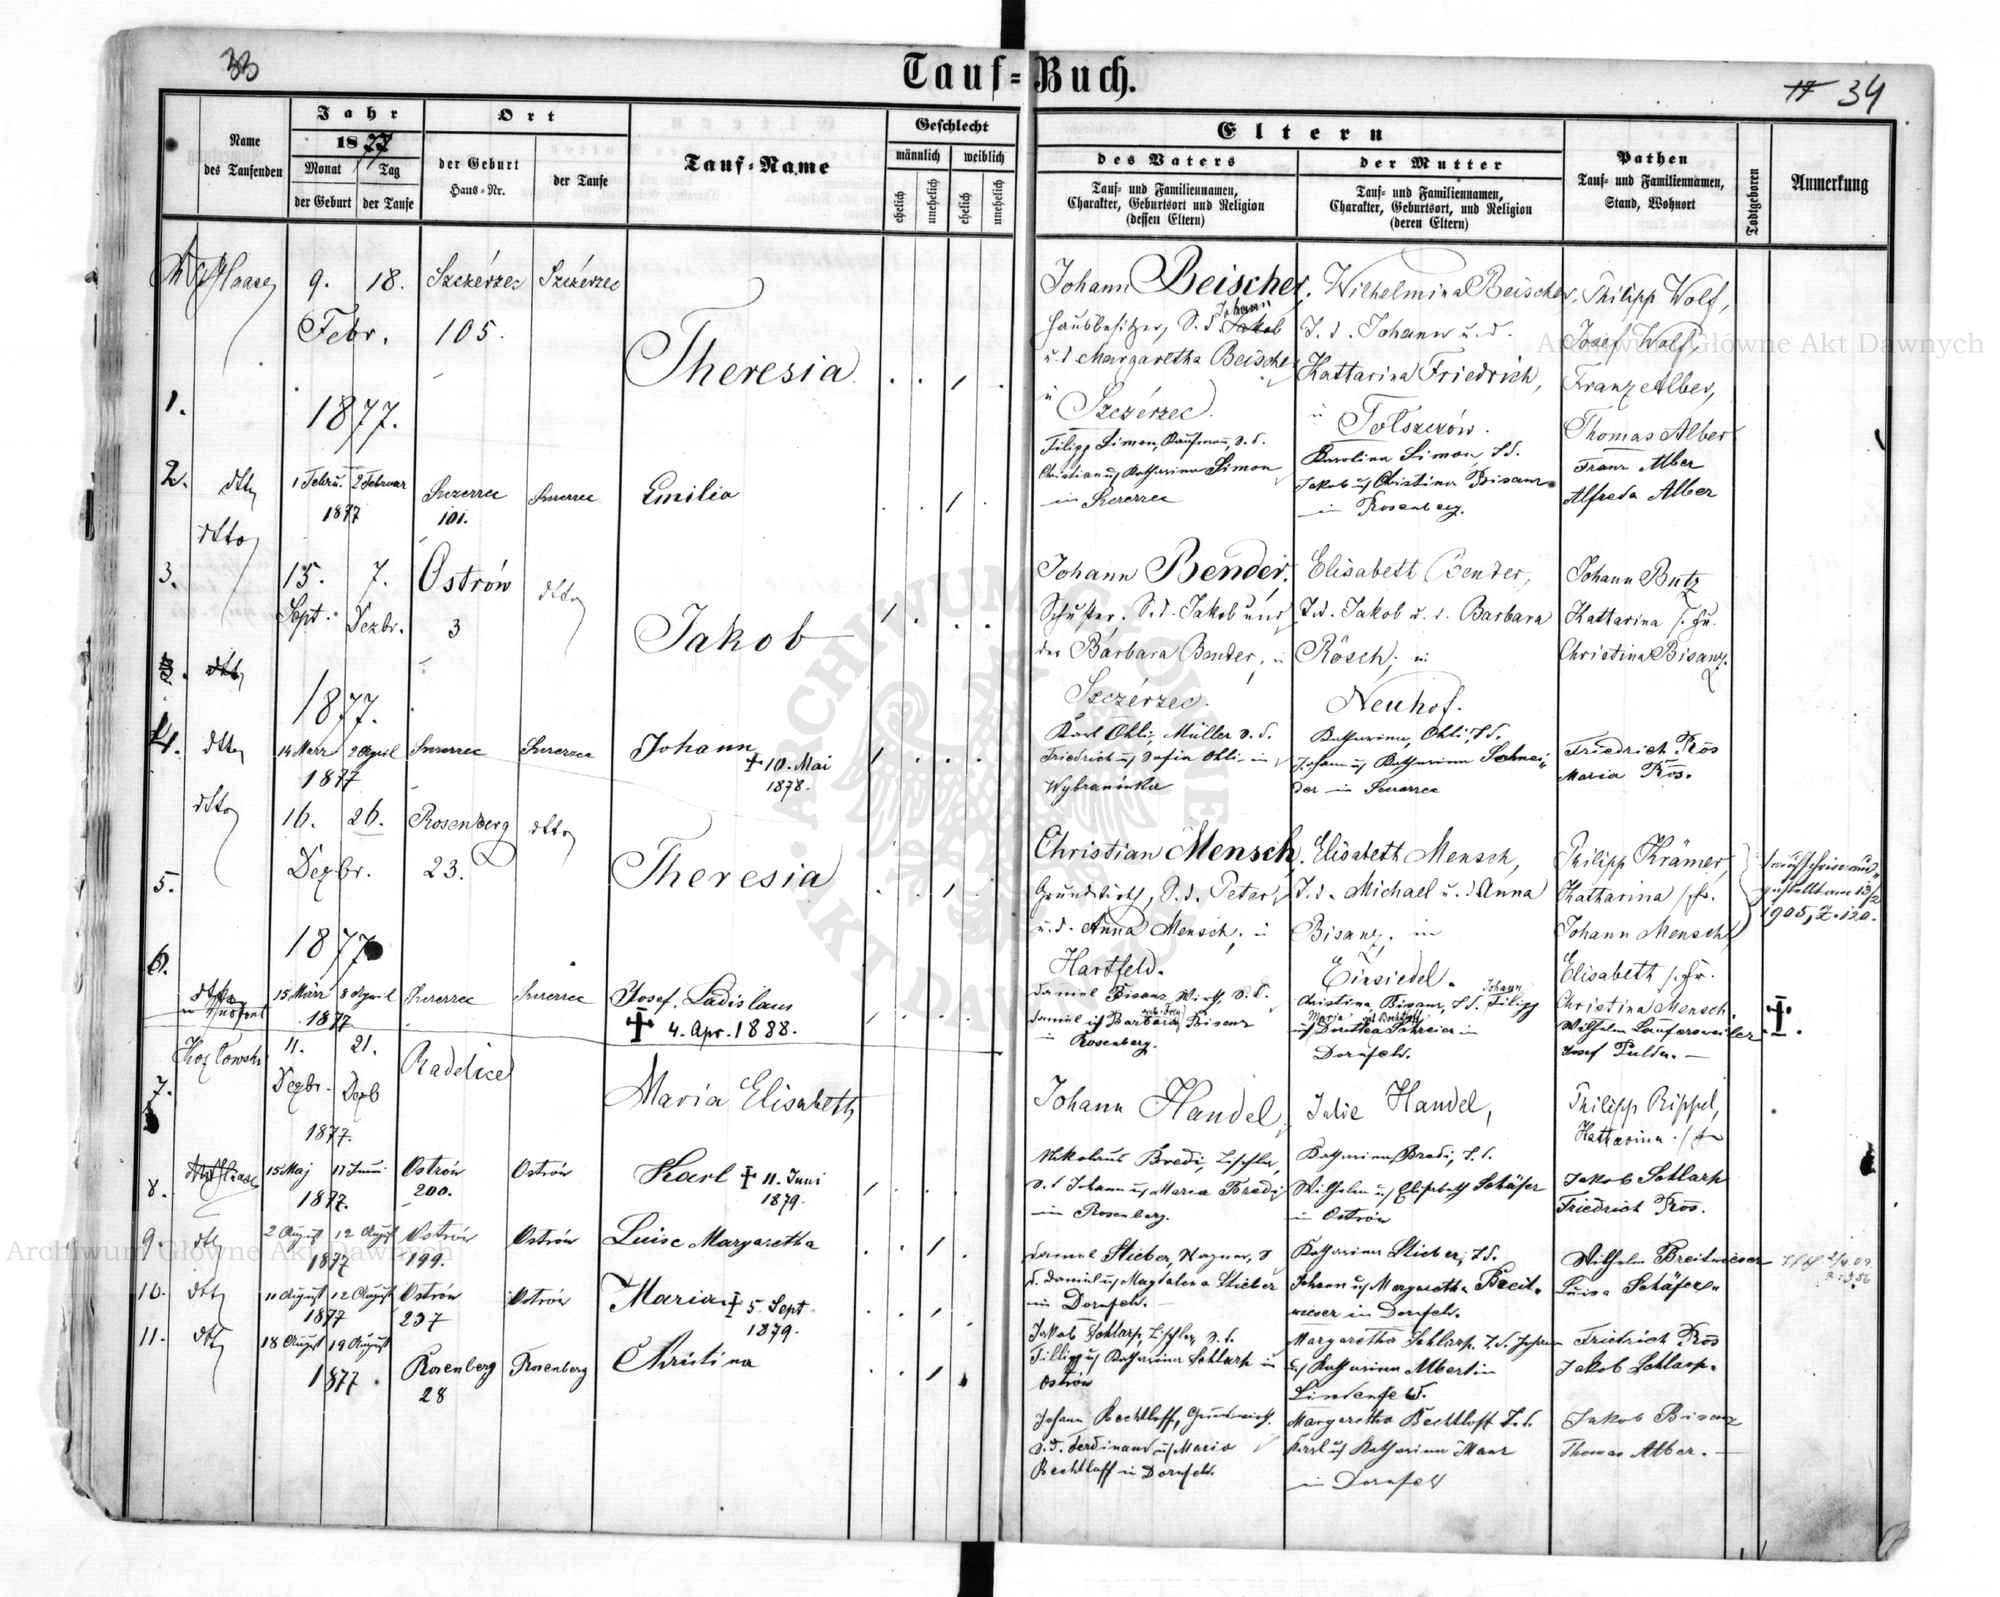 33
Tauf-Buch.
17 34
Name
des Taufenden
Jahr
1877
Monat
Tag
der Geburt
der Taufe
Ort
der Geburt
Haus-Nr.
der Taufe
Tauf-Name
Geschlecht
männlich
weiblich
ehelich
unehelich
ehelich
unehelich
Eltern
des Vaters
Tauf- und Familiennamen,
Charakter, Geburtsort und Religion
(dessen Eltern)
der Mutter
Tauf- und Familiennamen,
Charakter, Geburtsort, und Religion
(deren Eltern)
Pathen
Tauf- und Familiennamen,
Stand, Wohnort
Todtgeboren
Anmerkung
1.
Haase
9. 18.
Febr.
1877.
Szczérzec
105.
Szczérzec
Theresia
Johann Beischer,
Hausbesitzer, S. d. Johann Jakob
u. d Margaretha Beischer
Szczérzec.
Wilhelmina Beischer,
T. d. Johann u. d.
Kattarina Friedrich,
Tolszczów.
Philipp Wolf,
Josef Wolf,
Franz Alber,
Thomas Alber
2.
dtto
1 Febru. 2 Februar
1877
Szczerzec
101.
Szczerzec
Emilia
Filipp Simon, Kaufmann, S. d.
Christian u Katharina Simon
in Szczerzec
Karolina Simon, T d.
Jakob u Christina Bisanz
in Rosenberg.
Franz Alber
Alfreda Alber
3.
dtto
15. 7.
Sept. Dezbr.
1877.
Ostrów
3
dtto
Jakob
Johann Bender,
Schuster, S. d. Jakob und
der Barbara Bender, in
Szczérzec.
Elisabeth Bender,
T. d. Jakob u. d. Barbara
Rösch, in
Neuhof.
Johann Butz
Kattarina s. Fr.
Christina Bisanz.
dtto
4.
dtto
14 März 2 April
1877
Szczerzec
Szczerzec
Johann
+ 10. Mai
1878.
Karl Ohli, Müller S. d.
Friedrich u Sofia Ohli in
Wybranówka
Katharina Ohli, T d.
Johann u Katharina Schnei-
der in Szczerzec
Friedrich Kos
Maria Kos.
5.
dtto
16. 26.
Dezbr.
1877
Rosenberg
23.
dtto
Theresia
Christian Mensch,
Grundwirth, S. d. Peter
u. d. Anna Mensch, in
Hartfeld.
Elisabeth Mensch,
T. d. Michael u. d Anna
Bisanz, in
Einsiedel.
Philipp Krämer,
Katharina s. fr.
Johann Mensch
Elisabeth s. Fr.
Christina Mensch.
Taufschein aus-
gestellt am 13/2
1905, Z. 120.
6.
dtto
15 März 8 April
1877
Szczerzec
Szczerzec
Josef Ladislaus
+ 4. Apr. 1888.
Daniel Bisanz, Wirth, S. d.
Daniel u Barbara Bisanz
in Rosenberg.
Christina Bisanz, T d. Johann Filipp
u Dorothea Schreier in
Dornfeld.
Wilhelm Laufersweiler
Josef Pulda.
+.
7.
Kozlowski
11. 21.
Dezbr. Dezb
1877.
Raddice
Maria Elisabeth
Johann Handel,
Julie Handel,
Philipp Rippel,
Kattarina s. fr
8.
Haase
15 Maj 17 Juni
1877.
Ostrów
200.
Ostrów
Karl + 11. Juni
1879.
Nikolaus Bredi, Tischler,
S. d Johann u Maria Bredi
in Rosenberg.
Katharina Bredi, T. d.
Wilhelm u Elisabeth Schäfer
in Ostrów
Jakob Schlarp
Friedrich Kos.
9.
dtto
2 August 12 August
1877
Ostrów
199.
Ostrów
Luise Margaretha
Daniel Stieber, Wagner, S
d. Daniel u Magdalena Stieber
in Dornfeld.
Katharina Stieber, T d.
Johann u Margaretha Breit-
wieser in Dornfeld.
Wilhelm Breitwieser
Luisa Schäfer
10.
dtto
11 August 12 August
1877
Ostrów
237
Ostrów
Maria + 5. Sept.
1879.
Jakob Schlarp, Tischler, S. d.
Fillipp u Katharina Schlarp in
Ostrów
Margaretha Schlarp, T. d. Johann
u Katharina Albertin
Lindenfeld.
Friedrich Kos
Jakob Schlarp.
11.
dtto
18 August 19 August
1877.
Rosenberg
28
Rosenberg
Christina
Johann Bechtloff, Grundwirth,
S. d. Ferdinand u Maria
Bechtloff in Dornfeld.
Margaretha Bechtloff T. d.
Karl u Katharina Manz
in Dornfeld
Jakob Bisanz
Thomas Alber.
Archiwum Główne Akt Dawnych
Archiwum Główne Akt Dawnych
ARCHIWUM GŁÓWNE AKT DAWNYCH